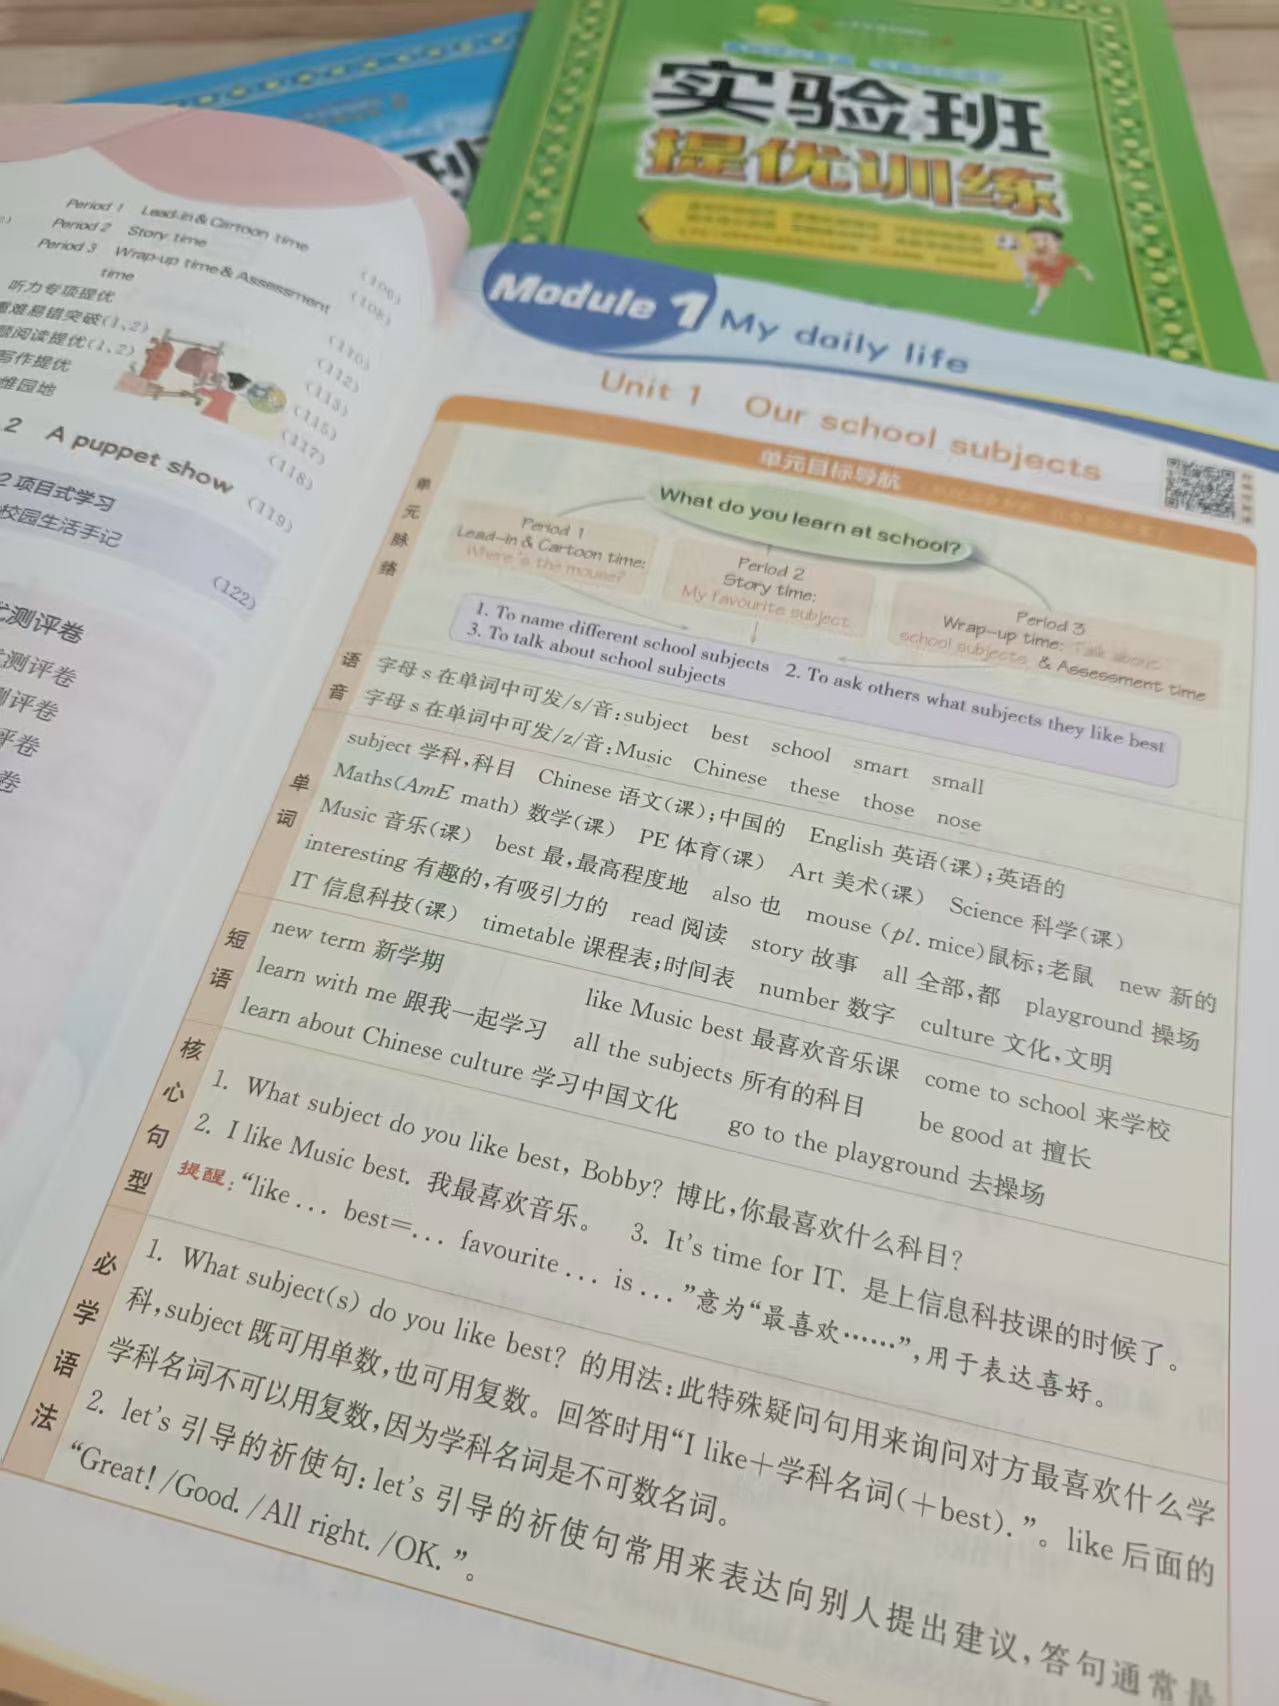 实验班
提优训练
班
Period 1 Lead-in & Cartoon time (106)
Period 2 Story time (108)
Period 3 Wrap-up time & Assessment
time (110)
听力专项提优 (112)
重难易错突破(1、2) (113)
题阅读提优(1、2) (115)
写作提优 (117)
维园地 (118)
2 A puppet show (119)
2 项目式学习
校园生活手记 (122)
测评卷
测评卷
测评卷
评卷
卷
Module 1 My daily life
Unit 1 Our school subjects
单元目标导航
单元脉络
What do you learn at school?
Period 1
Lead-in & Cartoon time:
Where's the mouse?
Period 2
Story time:
My favourite subject
Period 3
Wrap-up time: Talk about
school subjects & Assessment time
1. To name different school subjects 2. To ask others what subjects they like best
3. To talk about school subjects
语音
字母 s 在单词中可发/s/音:subject best school smart small
字母 s 在单词中可发/z/音:Music Chinese these those nose
单词
subject 学科,科目 Chinese 语文(课);中国的 English 英语(课);英语的
Maths(AmE math) 数学(课) PE 体育(课) Art 美术(课) Science 科学(课)
Music 音乐(课) best 最,最高程度地 also 也 mouse (pl. mice)鼠标;老鼠 new 新的
interesting 有趣的,有吸引力的 read 阅读 story 故事 all 全部,都 playground 操场
IT 信息科技(课) timetable 课程表;时间表 number 数字 culture 文化,文明
短语
new term 新学期 like Music best 最喜欢音乐课 come to school 来学校
learn with me 跟我一起学习 all the subjects 所有的科目 be good at 擅长
learn about Chinese culture 学习中国文化 go to the playground 去操场
核心句型
1. What subject do you like best, Bobby? 博比,你最喜欢什么科目?
2. I like Music best. 我最喜欢音乐。 3. It's time for IT. 是上信息科技课的时候了。
提醒:“like... best=... favourite... is...”意为“最喜欢……”,用于表达喜好。
必学语法
1. What subject(s) do you like best? 的用法:此特殊疑问句用来询问对方最喜欢什么学
科,subject 既可用单数,也可用复数。回答时用“I like+学科名词(+best).”。like 后面的
学科名词不可以用复数,因为学科名词是不可数名词。
2. let's 引导的祈使句:let's 引导的祈使句常用来表达向别人提出建议,答句通常是
“Great! /Good. /All right. /OK.”。